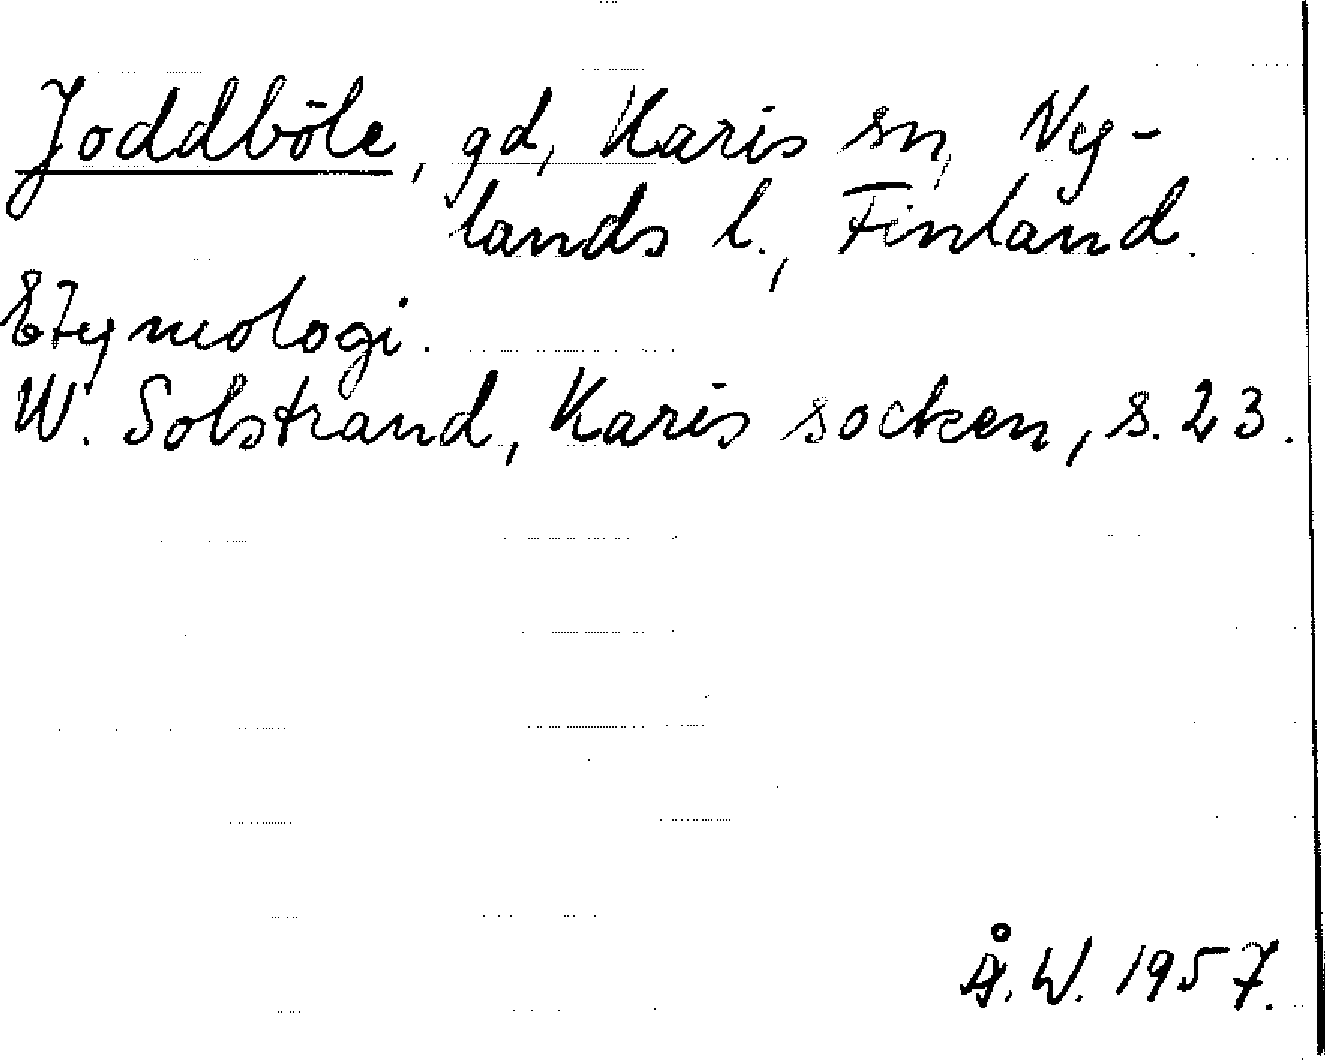 Joddböle, gd, Karis sn, Ny-
lands l., Finland.
Etymologi.
W. Solstrand, Karis socken, s. 23.
Å. W. 1957.